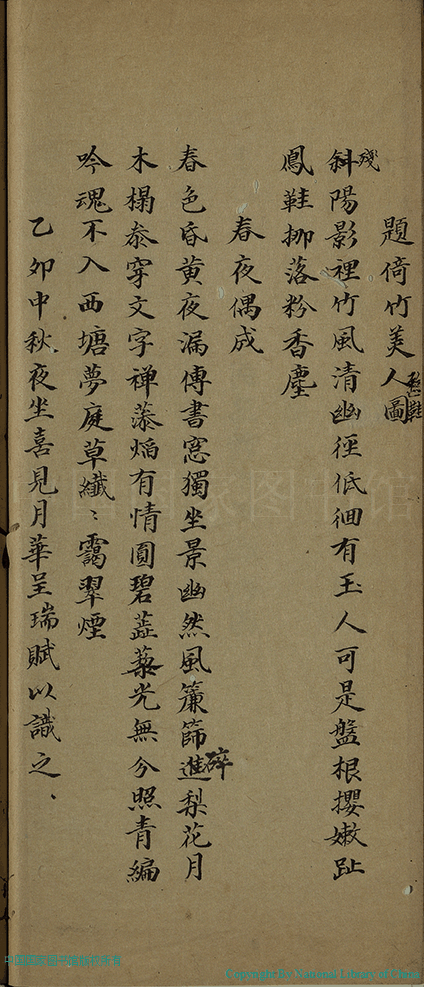 題倚竹美人圖
整鞋
斜陽影裡竹風清幽徑低徊有玉人可是盤根攖嫩趾
殘
鳳鞋挪落粉香塵
春夜偶成
春色昏黃夜漏傳書窓獨坐景幽然風簾篩進梨花月
碎
木榻泰穿文字禅蒤熖有情圓碧蕋藜光無分照青編
吟魂不入西塘夢庭草纖〻靄翠煙
乙卯中秋夜坐喜見月華呈瑞賦以識之
Copyright by National Library of China